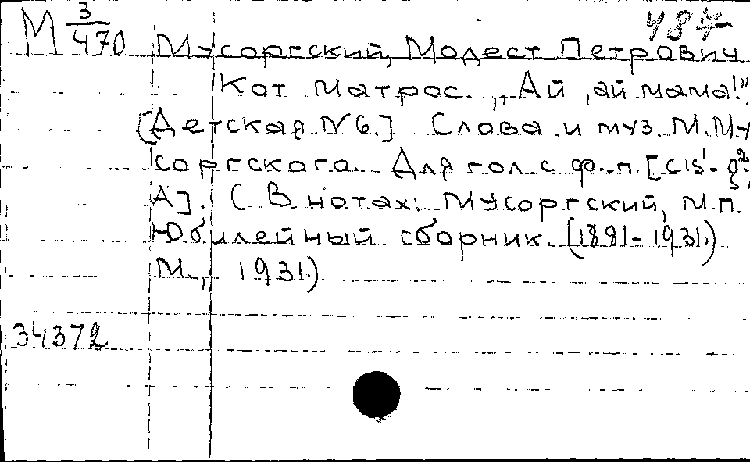 М 3/470
487
Мусоргский, Модест Петрович
Кот матрос. „Ай, ай мама!"
[Детская N 6.] Слова и муз. М. Му-
соргского. Для гол. с ф.-п. [cis'-g²;
A]. (В нотах: Мусоргский, М.П.
Юбилейный сборник. (1881-1931.)
М., 1931.)
34372